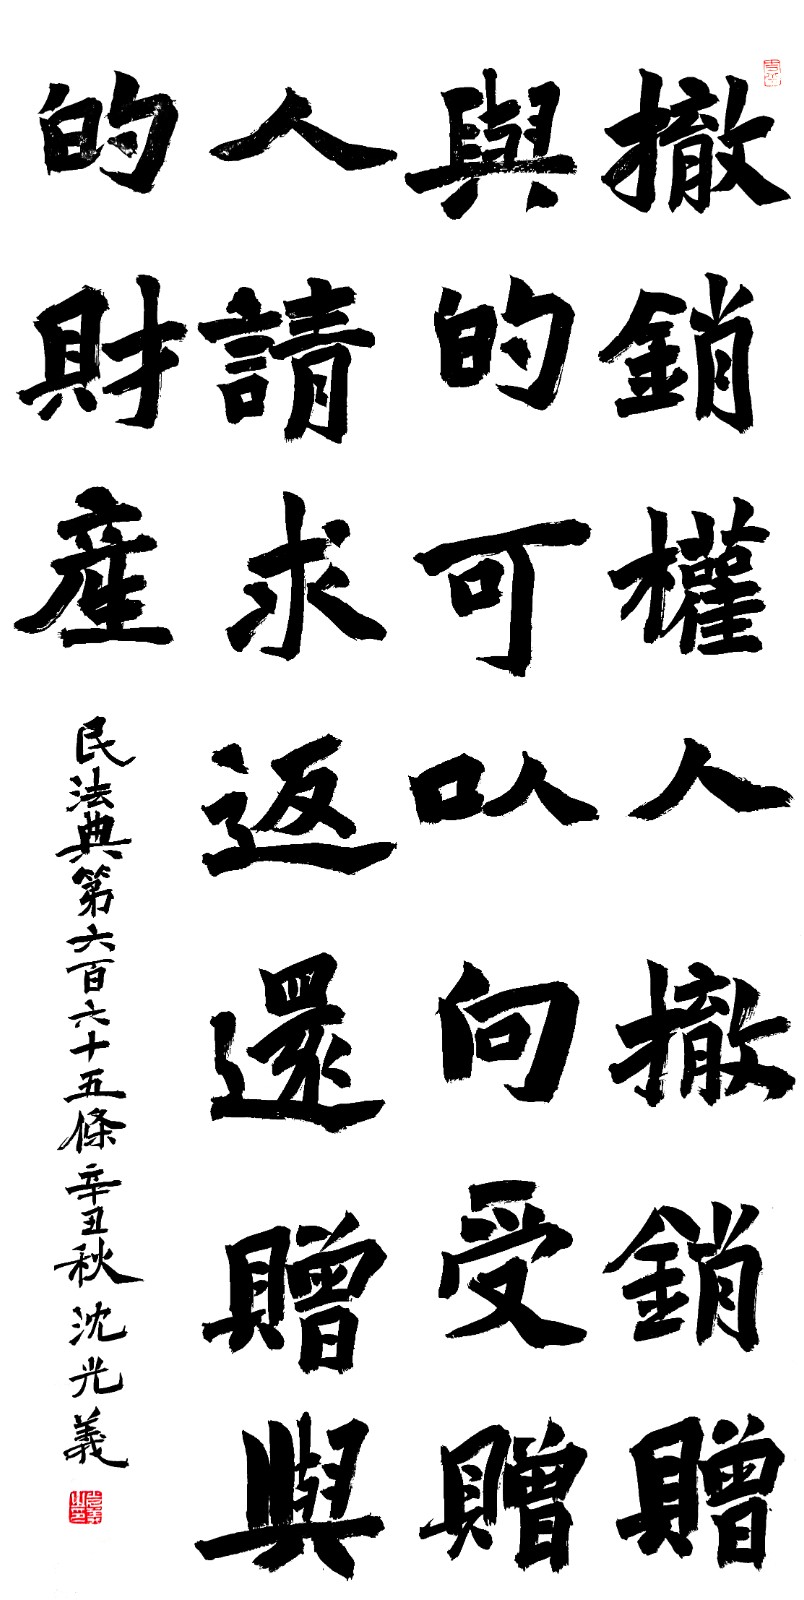 撤銷權人撤銷贈
與的可以向受贈
人請求返還贈與
的財產
民法典第六百六十五條辛丑秋沈光義